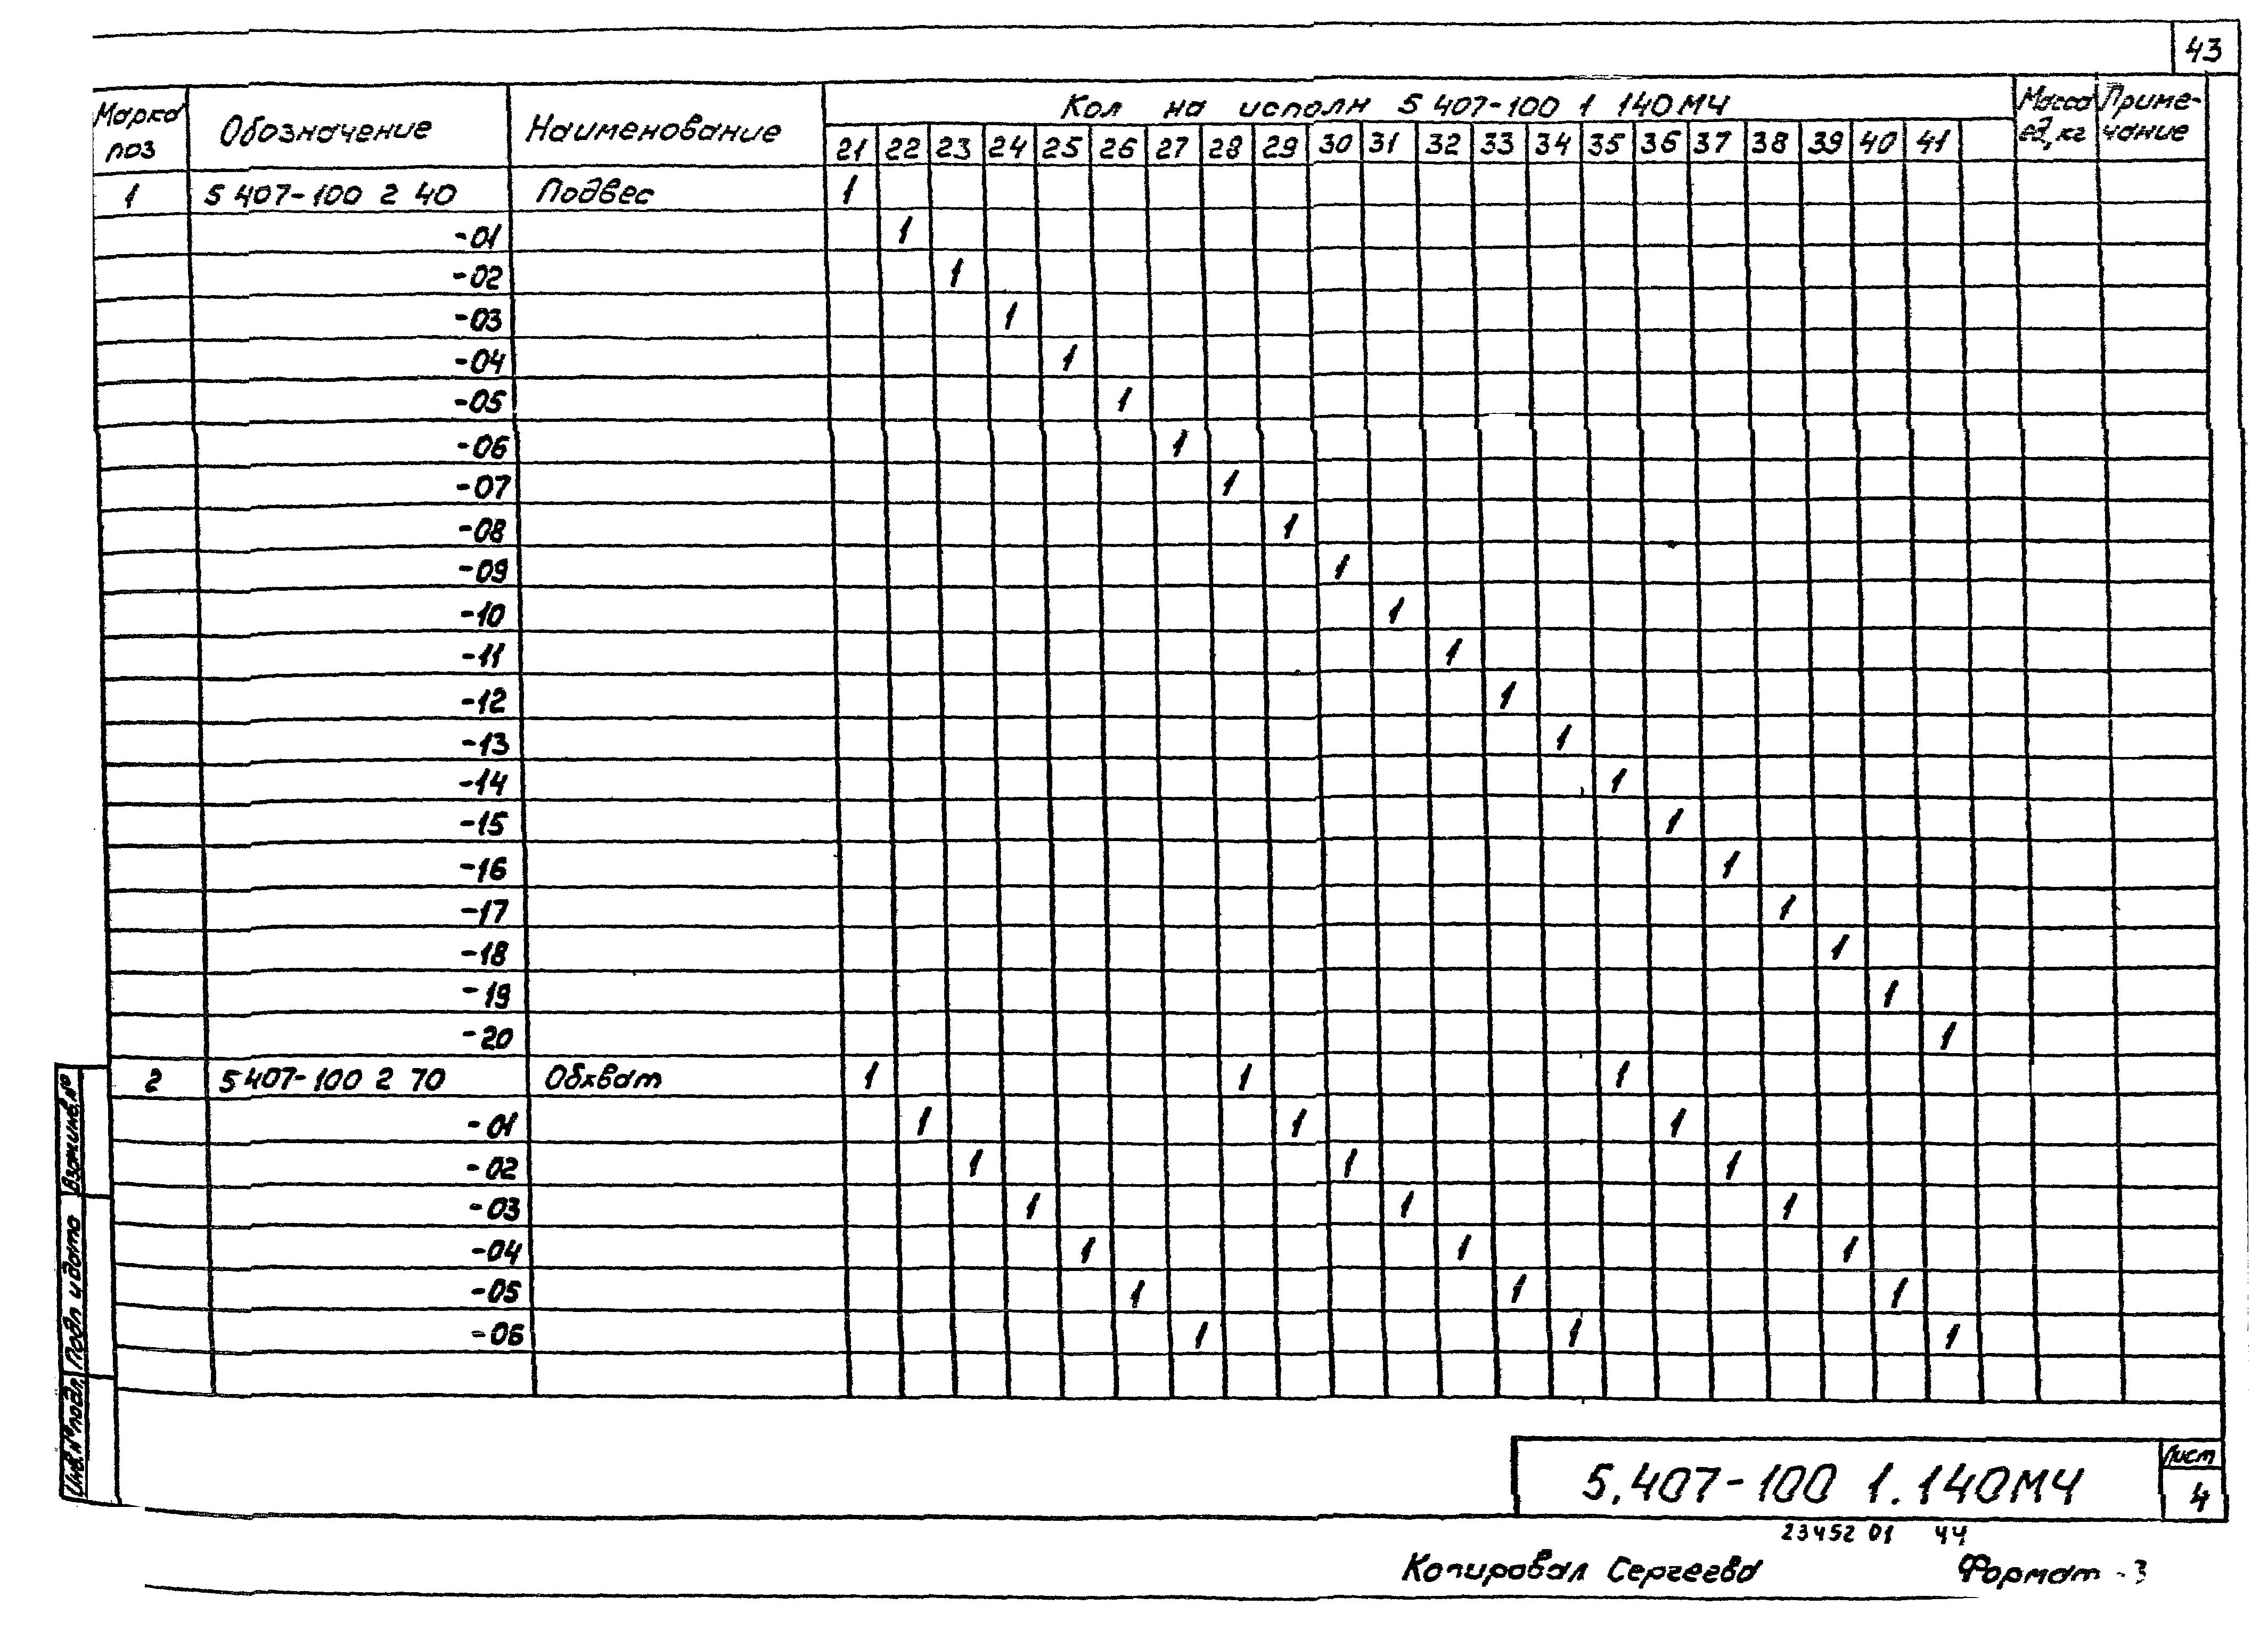 43
Марка поз Обозначение Наименование Кол на исполн 5 407-100 1 140МЧ Масса ед, кг Приме-чание
21 22 23 24 25 26 27 28 29 30 31 32 33 34 35 36 37 38 39 40 41
1 5 407-100 2 40 Подвес 1
-01 1
-02 1
-03 1
-04 1
-05 1
-06 1
-07 1
-08 1
-09 1
-10 1
-11 1
-12 1
-13 1
-14 1
-15 1
-16 1
-17 1
-18 1
-19 1
-20 1
2 5 407-100 2 70 Обхват 1 1 1
-01 1 1 1
-02 1 1 1
-03 1 1 1
-04 1 1 1
-05 1 1 1
-06 1 1 1
Взам инв.№
Подп и дата
Инв.№ подл.
5.407-100 1.140МЧ
Лист
4
23452 01 44
Копировал Сергеева Формат -3